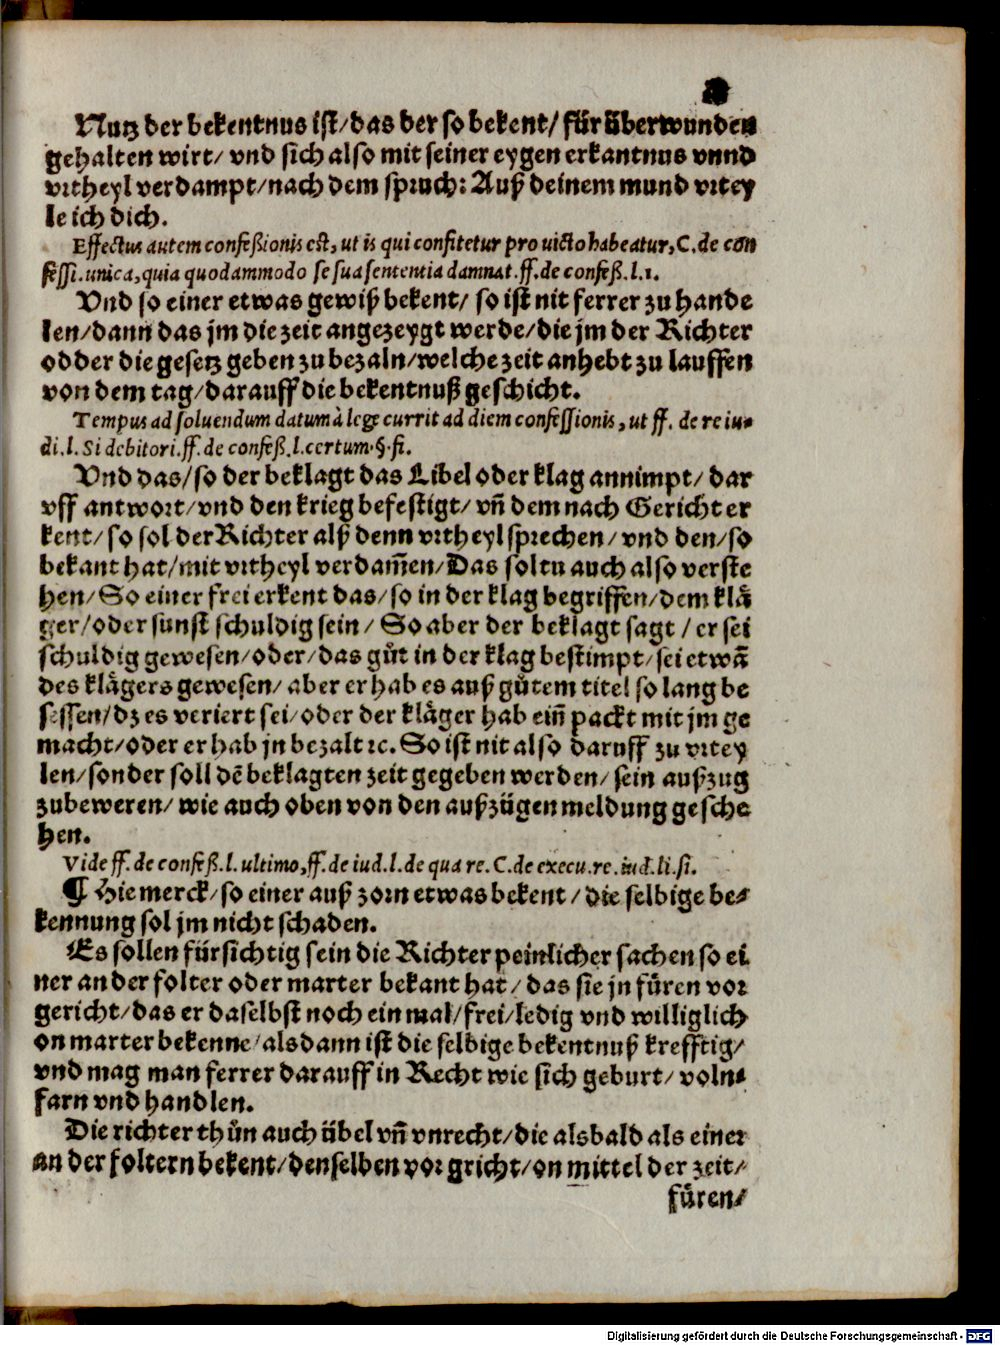 Nutz der bekentnus ist/das der so bekent/ für überwunden
gehalten wirt/ vnd sich also mit seiner eygen erkantnus vnnd
vrtheyl verdampt/nach dem spruch: Auß deinem mund vrtey
le ich dich.
Effectus autem confeßionis est, ut is qui confitetur pro uicto habeatur, C. de con
fessi. unica, quia quodammodo se sua sententia damnat. ff. de confeß. l. 1.
Vnd so einer etwas gewiß bekent/ so ist nit ferrer zu hande
len/dann das jm die zeit angezeygt werde/die jm der Richter
odder die gesetz geben zu bezaln/welche zeit anhebt zu lauffen
von dem tag/darauff die bekentnuß geschicht.
Tempus ad soluendum datum à lege currit ad diem confessionis, ut ff. de re iu-
di. l. Si debitori. ff. de confeß. l. certum. §. fi.
Vnd das/so der beklagt das Libel oder klag annimpt/ dar
vff antwort/vnd den krieg befestigt/ vñ dem nach Gericht er
kent/ so sol der Richter alß denn vrtheyl sprechen/ vnd den/so
bekant hat/mit vrtheyl verdam̃en/Das soltu auch also verste
hen/So einer frei erkent das/so in der klag begriffen/dem klä
ger/oder sunst schuldig sein/ So aber der beklagt sagt / er sei
schuldig gewesen/oder/das gůt in der klag bestimpt/sei etwã
des klägers gewesen/ aber er hab es auß gůtem titel so lang be
sessen/dz es veriert sei/oder der kläger hab eiñ packt mit jm ge
macht/oder er hab jn bezalt ꝛc. So ist nit also daruff zu vrtey
len/sonder soll dẽ beklagten zeit gegeben werden/ sein außzug
zubeweren/ wie auch oben von den außzügen meldung gesche
hen.
Vide ff. de confeß. l. ultimo, ff. de iud. l. de qua re. C. de execu. re. iud. li. si.
¶ Hie merck/so einer auß zorn etwas bekent / die selbige be-
kennung sol jm nicht schaden.
Es sollen fürsichtig sein die Richter peinlicher sachen so ei
ner an der folter oder marter bekant hat/ das sie jn füren vor
gericht/das er daselbst noch ein mal/frei/ledig vnd williglich
on marter bekenne/alsdann ist die selbige bekentnuß krefftig/
vnd mag man ferrer darauff in Recht wie sich geburt/ voln-
farn vnd handlen.
Die richter thůn auch übel vñ vnrecht/die alsbald als einer
an der foltern bekent/denselben vor gricht/on mittel der zeit/
füren/
Digitalisierung gefördert durch die Deutsche Forschungsgemeinschaft - DFG